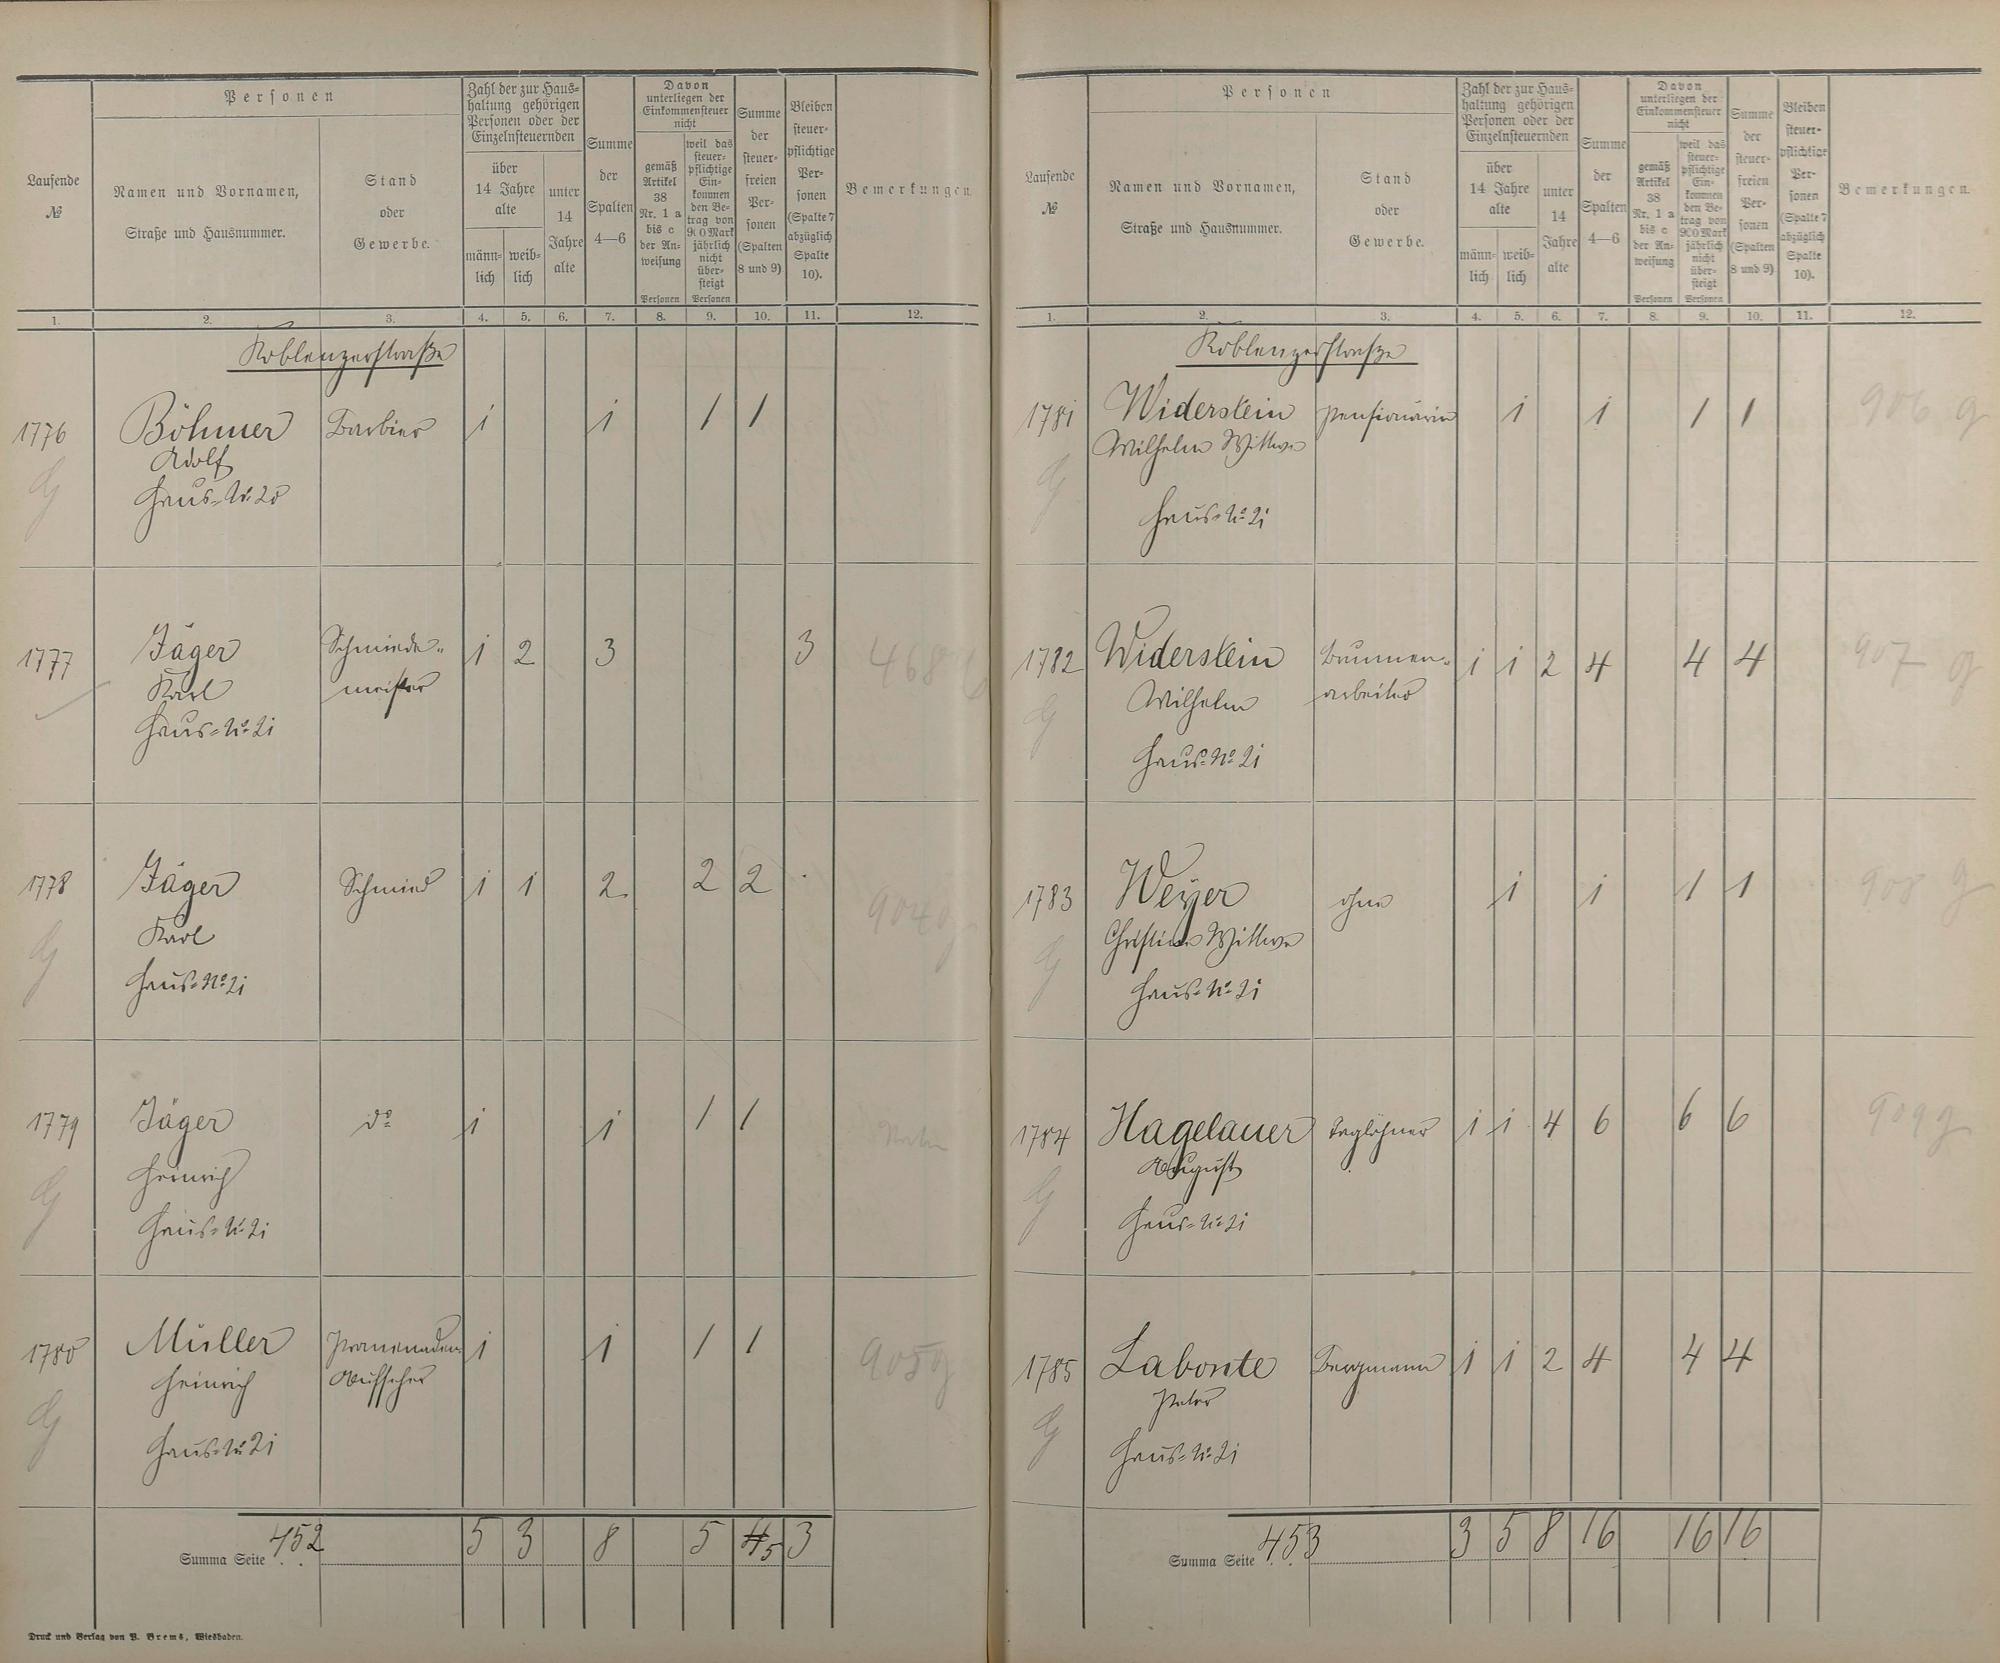 Laufende
№
Personen
Namen und Vornamen,
Straße und Hausnummer.
Stand
oder
Gewerbe.
Zahl der zur Haus-
haltung gehörigen
Personen oder der
Einzelnsteuernden
über
14 Jahre
alte
männ-
lich
weib-
lich
unter
14
Jahre
alte
Summe
der
Spalten
4—6
Davon
unterliegen der
Einkommensteuer
nicht
gemäß
Artikel
38
Nr. 1 a
bis c
der An-
weisung
Personen
weil das
steuer-
pflichtige
Ein-
kommen
den Be-
trag von
900 Mark
jährlich
nicht
über-
steigt
Personen
Summe
der
steuer-
freien
Per-
sonen
(Spalten
8 und 9)
Bleiben
steuer-
pflichtige
Per-
sonen
(Spalte 7
abzüglich
Spalte
10).
Bemerkungen.
1. 2. 3. 4. 5. 6. 7. 8. 9. 10. 11. 12.
Koblenzerstraße
1776 Böhmer Barbier 1 1 1 1
Adolf
Haus-No. 20
1777 Jäger Schmiede- 1 2 3 3 468
Karl meister
Haus-No 21
1778 Jäger Schmied 1 1 2 2 2 904 g
Karl
Haus-No 21
1779 Jäger do 1 1 1 1
Heinrich
Haus-No 21
1780 Müller Promenaden- 1 1 1 1 905 g
Heinrich Aufseher
Haus-No 21
Summa Seite 452 5 3 8 5 4 5 3
Druck und Verlag von P. Brems, Wiesbaden.
Laufende
№
Personen
Namen und Vornamen,
Straße und Hausnummer.
Stand
oder
Gewerbe.
Zahl der zur Haus-
haltung gehörigen
Personen oder der
Einzelnsteuernden
über
14 Jahre
alte
männ-
lich
weib-
lich
unter
14
Jahre
alte
Summe
der
Spalten
4—6
Davon
unterliegen der
Einkommensteuer
nicht
gemäß
Artikel
38
Nr. 1 a
bis c
der An-
weisung
Personen
weil das
steuer-
pflichtige
Ein-
kommen
den Be-
trag von
900 Mark
jährlich
nicht
über-
steigt
Personen
Summe
der
steuer-
freien
Per-
sonen
(Spalten
8 und 9)
Bleiben
steuer-
pflichtige
Per-
sonen
(Spalte 7
abzüglich
Spalte
10).
Bemerkungen.
1. 2. 3. 4. 5. 6. 7. 8. 9. 10. 11. 12.
Koblenzerstraße
1781 Widerstein Pensionärin 1 1 1 1 906 g
Wilhelm Wittwe
Haus-No 21
1782 Widerstein Brunnen- 1 1 2 4 4 4 907 g
Wilhelm arbeiter
Haus-No 21
1783 Weyer ohne 1 1 1 1 908 g
Christian Wittwe
Haus-No 21
1784 Hagelauer Taglöhner 1 1 4 6 6 6 909 g
August
Haus-No 21
1785 Labonte Bergmann 1 1 2 4 4 4
Peter
Haus-No 21
Summa Seite 453 3 5 8 16 16 16